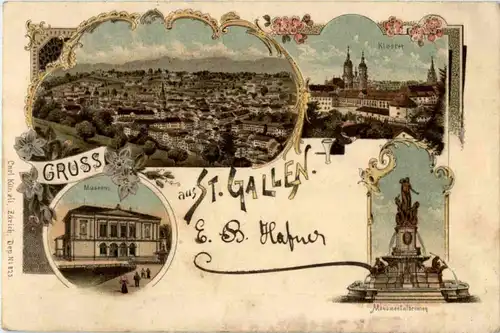 Kloster
GRUSS
aus ST. GALLEN.
Museum.
E. B. Hafner
Monumentalbrunnen
Carl Künzli, Zürich. Dep. No 823.